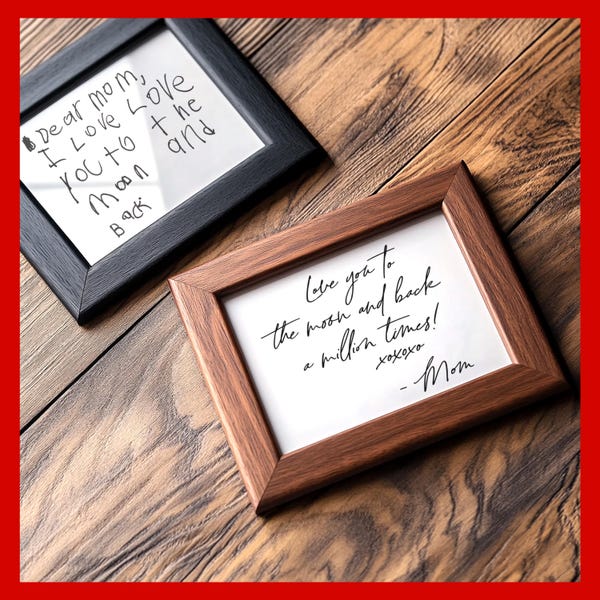 Dear mom,
I Love LOVE
you to the
moon and
Back
Love you to
the moon and back
a million times!
xoxoxo
- Mom